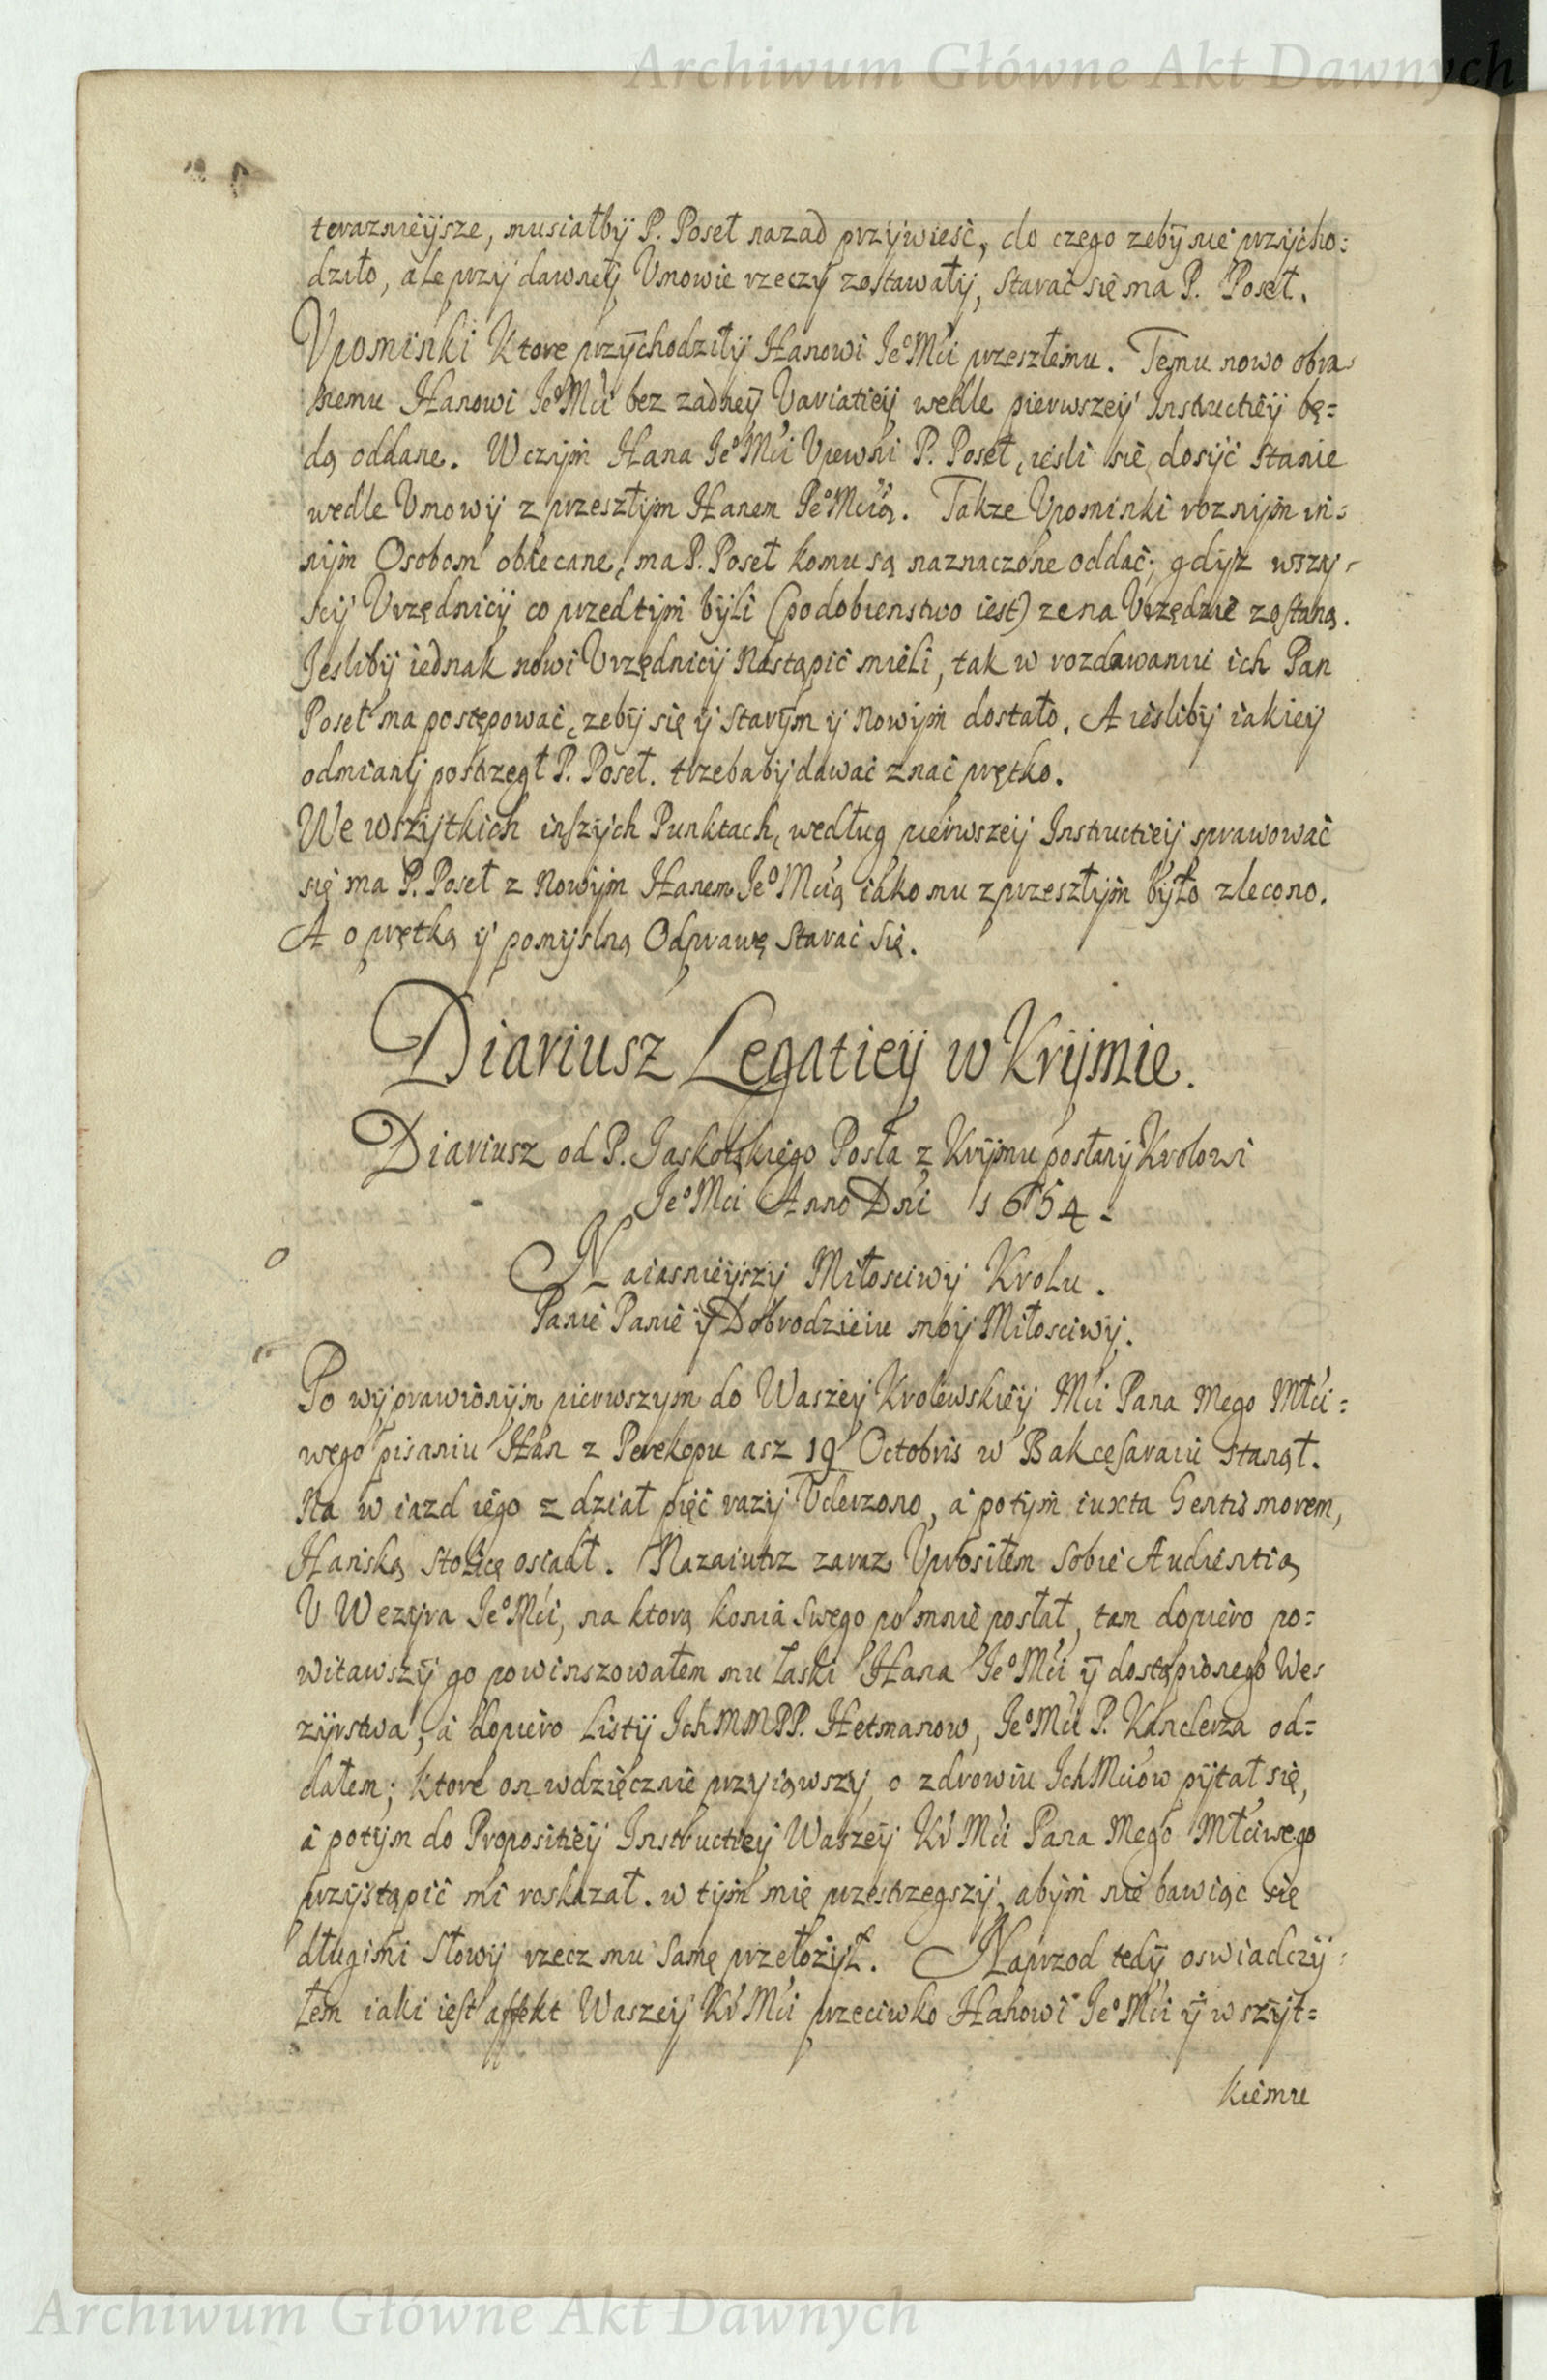 Archiwum Główne Akt Dawnych
teraznieijsze, musiałbÿ P. Poseł nazad przÿwiesć, do czego zebÿ nie przÿcho:
dziło, ale przÿ dawneÿ Vmowie rzeczÿ zostawałÿ, starać się ma P. Poseł.
Vpominki Ktore przÿchodziłÿ Hanowi JeºMći przeszłemu. Temu nowo obra=
nemu Hanowi JeºMći bez zadneÿ Variatieÿ wedle pierwszeÿ Instructieÿ bę=
dą oddane. W czÿm Hana JeºMći Vpewni P. Poseł, iesli się dosÿć stanie
wedle Vmowÿ z przeszłÿm Hanem JeºMcią. Takze Vpominki roznÿm in=
nÿm Osobom obiecane, ma P. Poseł komu są naznaczone oddać; gdÿz wszÿ=
scÿ Vrzędnicÿ co przedtÿm bÿli (podobienstwo iest) ze na Vrzędzie zostaną.
Jeslibÿ iednak nowi Vrzędnicÿ Nastąpić mieli, tak w rozdawaniu ich Pan
Poseł ma postępować, zebÿ się ÿ starÿm ÿ nowÿm dostało. A ieslibÿ iakieÿ
odmianÿ postrzegł P. Poseł. trzebabÿ dawać znać prętko.
We wszÿtkich inszÿch Punktach, według pierwszeÿ Instructieÿ sprawować
się ma P. Poseł z Nowÿm Hanem JeºMcią iako mu z przeszłÿm bÿło zlecono.
A o prętką ÿ pomÿslną Odprawę starać się.
Diariusz Legatieÿ w Krÿmie.
Diariusz od P. Jaskolskiego Posła z Krÿmu posłanÿ Krolowi
JeºMci Anno Dni 1654.
Naiasnieÿszÿ Miłosciwÿ Krolu.
Panie Panie ÿ Dobrodzieiu moÿ Miłosciwÿ.
Po wÿprawionÿm pierwszym do Waszeÿ Krolewskieÿ Mći Pana Mego Młći=
wego pisaniu Han z Perekopu asz 19 Octobris w Bakcesaraiu stanął.
Na w iazd iego z dział pięć razÿ Vderzono, a potÿm iuxta Gentis morem,
Hanską stolicę osiadł. Nazaiutrz zaraz Vprosiłem sobie Audientią
V Wezÿra JeºMći, na ktorą konia swego po mnie posłał, tam dopiero po=
witawszÿ go powinszowałem mu łaski Hana JeºMći ÿ dostąpionego We=
zÿrstwa, a dopiero Listÿ Ich MM PP. Hetmanow, JeºMći P. Kanclerza od=
dałem; Ktore on wdzięcznie przyiąwszy, o zdrowiu Ich Mciow pÿtał się,
a potÿm do Propositieÿ Instructieÿ Waszeÿ Kr Mći Pana Mego Młciwego
przÿstąpić mi roskazał. w tÿm mię przestrzegszÿ, abÿm nie bawiąc się
długimi słowÿ rzecz mu samę przełożÿł. Naprzod tedÿ oswiadczÿ=
łem iaki iest affekt Waszeÿ Kr Mći przeciwko Hanowi JeºMći ÿ wszÿt=
kiemu
Archiwum Główne Akt Dawnych